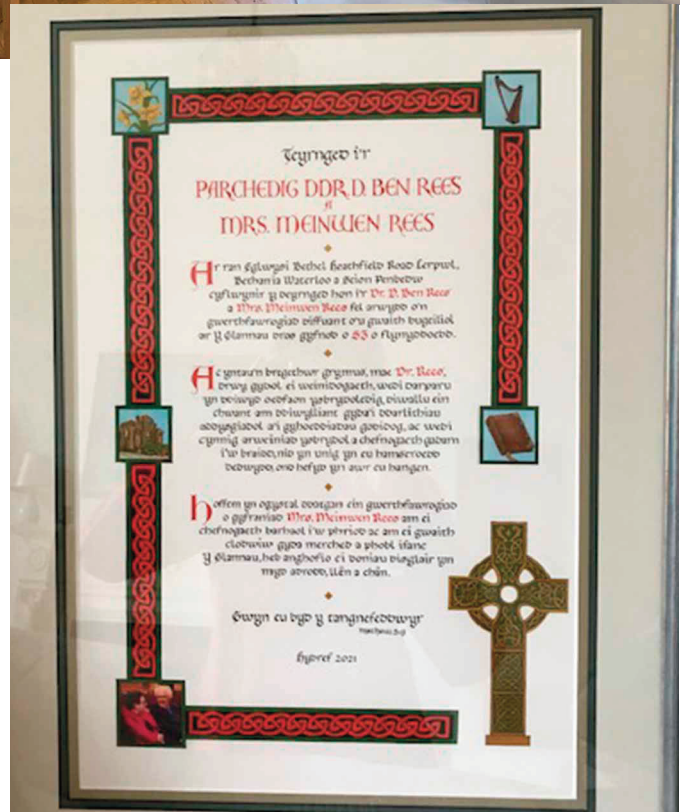 Teyrnged i'r
PARCHEDIG DDR D. BEN REES
A
MRS. MEINWEN REES
Ar ran Eglwysi Bethel Heathfield Road Lerpwl,
Bethania Waterloo a Seion Penbedw
cyflwynir y deyrnged hon i'r Dr. D. Ben Rees
a Mrs. Meinwen Rees fel arwydd o'n
gwerthfawrogiad diffuant o'u gwaith bugeiliol
ar y Glannau dros gyfnod o 53 o flynyddoedd.
Ac yntau'n bregethwr grymus, mae Dr. Rees,
drwy gydol ei weinidogaeth, wedi darparu
yn ddiwyd oedfaon ysbrydoledig, diwallu ein
chwant am ddiwylliant gyda'i ddarlithiau
addysgiadol a'i gyhoeddiadau godidog, ac wedi
cynnig arweiniad ysbrydol a chefnogaeth gadarn
i'w braidd, nid yn unig yn eu hamseroedd
dedwydd, ond hefyd yn awr eu hangen.
Hoffem yn ogystal ddatgan ein gwerthfawrogiad
o gyfraniad Mrs. Meinwen Rees am ei
chefnogaeth barhaol i'w phriod ac am ei gwaith
clodwiw gyda merched a phobl ifanc
y Glannau, heb anghofio ei doniau disglair yn
myd adrodd, llên a chân.
Gwyn eu byd y tangnefeddwyr
hydref 2021